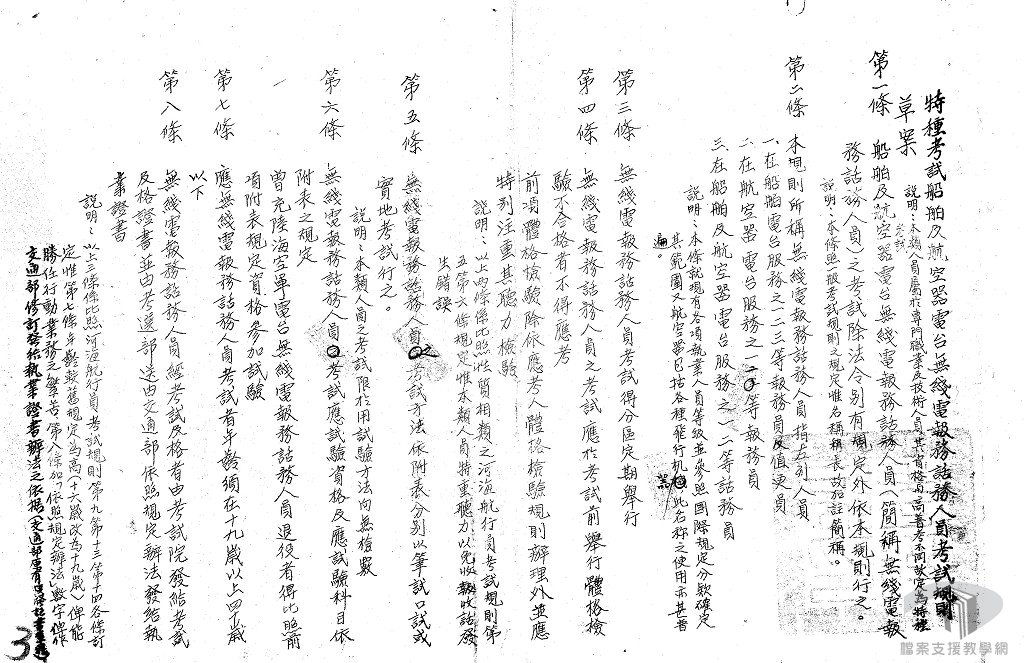 特種考試船舶及航空器電台無綫電報務話務人員考試規則
草案
說明：本類人員屬於專門職業及技術人員其資格與高普考不同故定為特種考試
第一條
船舶及航空器電台無綫電報務話務人員（簡稱無綫電報
務話務人員）之考試除法令別有規定外依本規則行之。
說明：本條照一般考試規則之規定惟名稱稱長故括註簡稱。
第二條
本規則所稱無綫電報務話務人員指左列人員
一、在船舶電台服務之一二三等報務員及值更員
二、在航空器電台服務之一二等報務員
三、在船舶及航空器電台服務之一二等話務員
說明：本條就現有各項執業人員等級並參照國際規定分款確定
其範圍又航空器已括各種飛行机器此名称之使用亦甚普
遍。
第三條
無綫電報務話務人員考試得分區定期舉行
第四條
無綫電報務話務人員之考試應於考試前舉行體格檢
驗不合格者不得應考
前項體格檢驗除依應考人體格檢驗規則辦理外並應
特別注重其聽力檢驗
說明：以上四條係比照性質相類之河海航行員考試規則第
五第六條規定惟本類人員特重聽力以免收報收話發
生錯誤
第五條
無綫電報務話務人員之考試方法依附表分別以筆試口試或
實地考試行之。
說明：本類人員之考試限於用試驗方法向無檢覈
第六條
無綫電報務話務人員考試應試驗資格及應試驗科目依
附表之規定
曾充陸海空軍電台無綫電報務話務人員退役者得比照前
項附表規定資格參加試驗
第七條
應無綫電報務話務人員考試者年齡須在十九歲以上四十歲
以下
第八條
無綫電報務話務人員經考試及格者由考試院發給考試
及格證書並由考選部送由交通部依照規定辦法發給執
業證書
說明：以上三條係比照河海航行員考試規則第九第十三第十四各條訂
定惟第七條年齡較舊規定為高（十六歲改為十九歲）俾能
勝任行動業務之繁苦第八條加「依照規定辦法」數字俾作
交通部修訂發給執業證書辦法之依據
3
檔案支援教學網